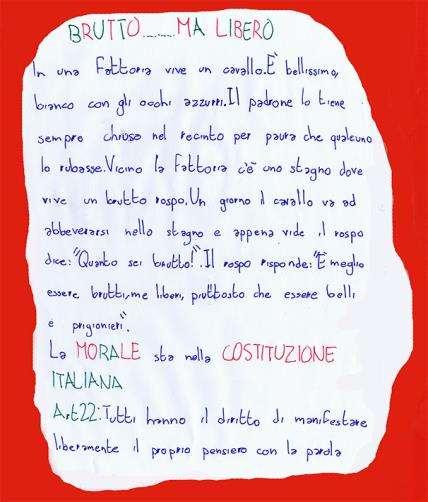 BRUTTO......MA LIBERO
In una fattoria vive un cavallo.È bellissimo,
bianco con gli occhi azzurri.Il padrone lo tiene
sempre chiuso nel recinto per paura che qualcuno
lo rubasse.Vicino la fattoria c'è uno stagno dove
vive un brutto rospo.Un giorno il cavallo va ad
abbeverarsi nello stagno e appena vide il rospo
dice:"Quanto sei brutto!".Il rospo risponde:"È meglio
essere brutti,me liberi, piuttosto che essere belli
e prigionieri".
La MORALE sta nella COSTITUZIONE
ITALIANA
Art22:Tutti hanno il diritto di manifestare
liberamente il proprio pensiero con la parola